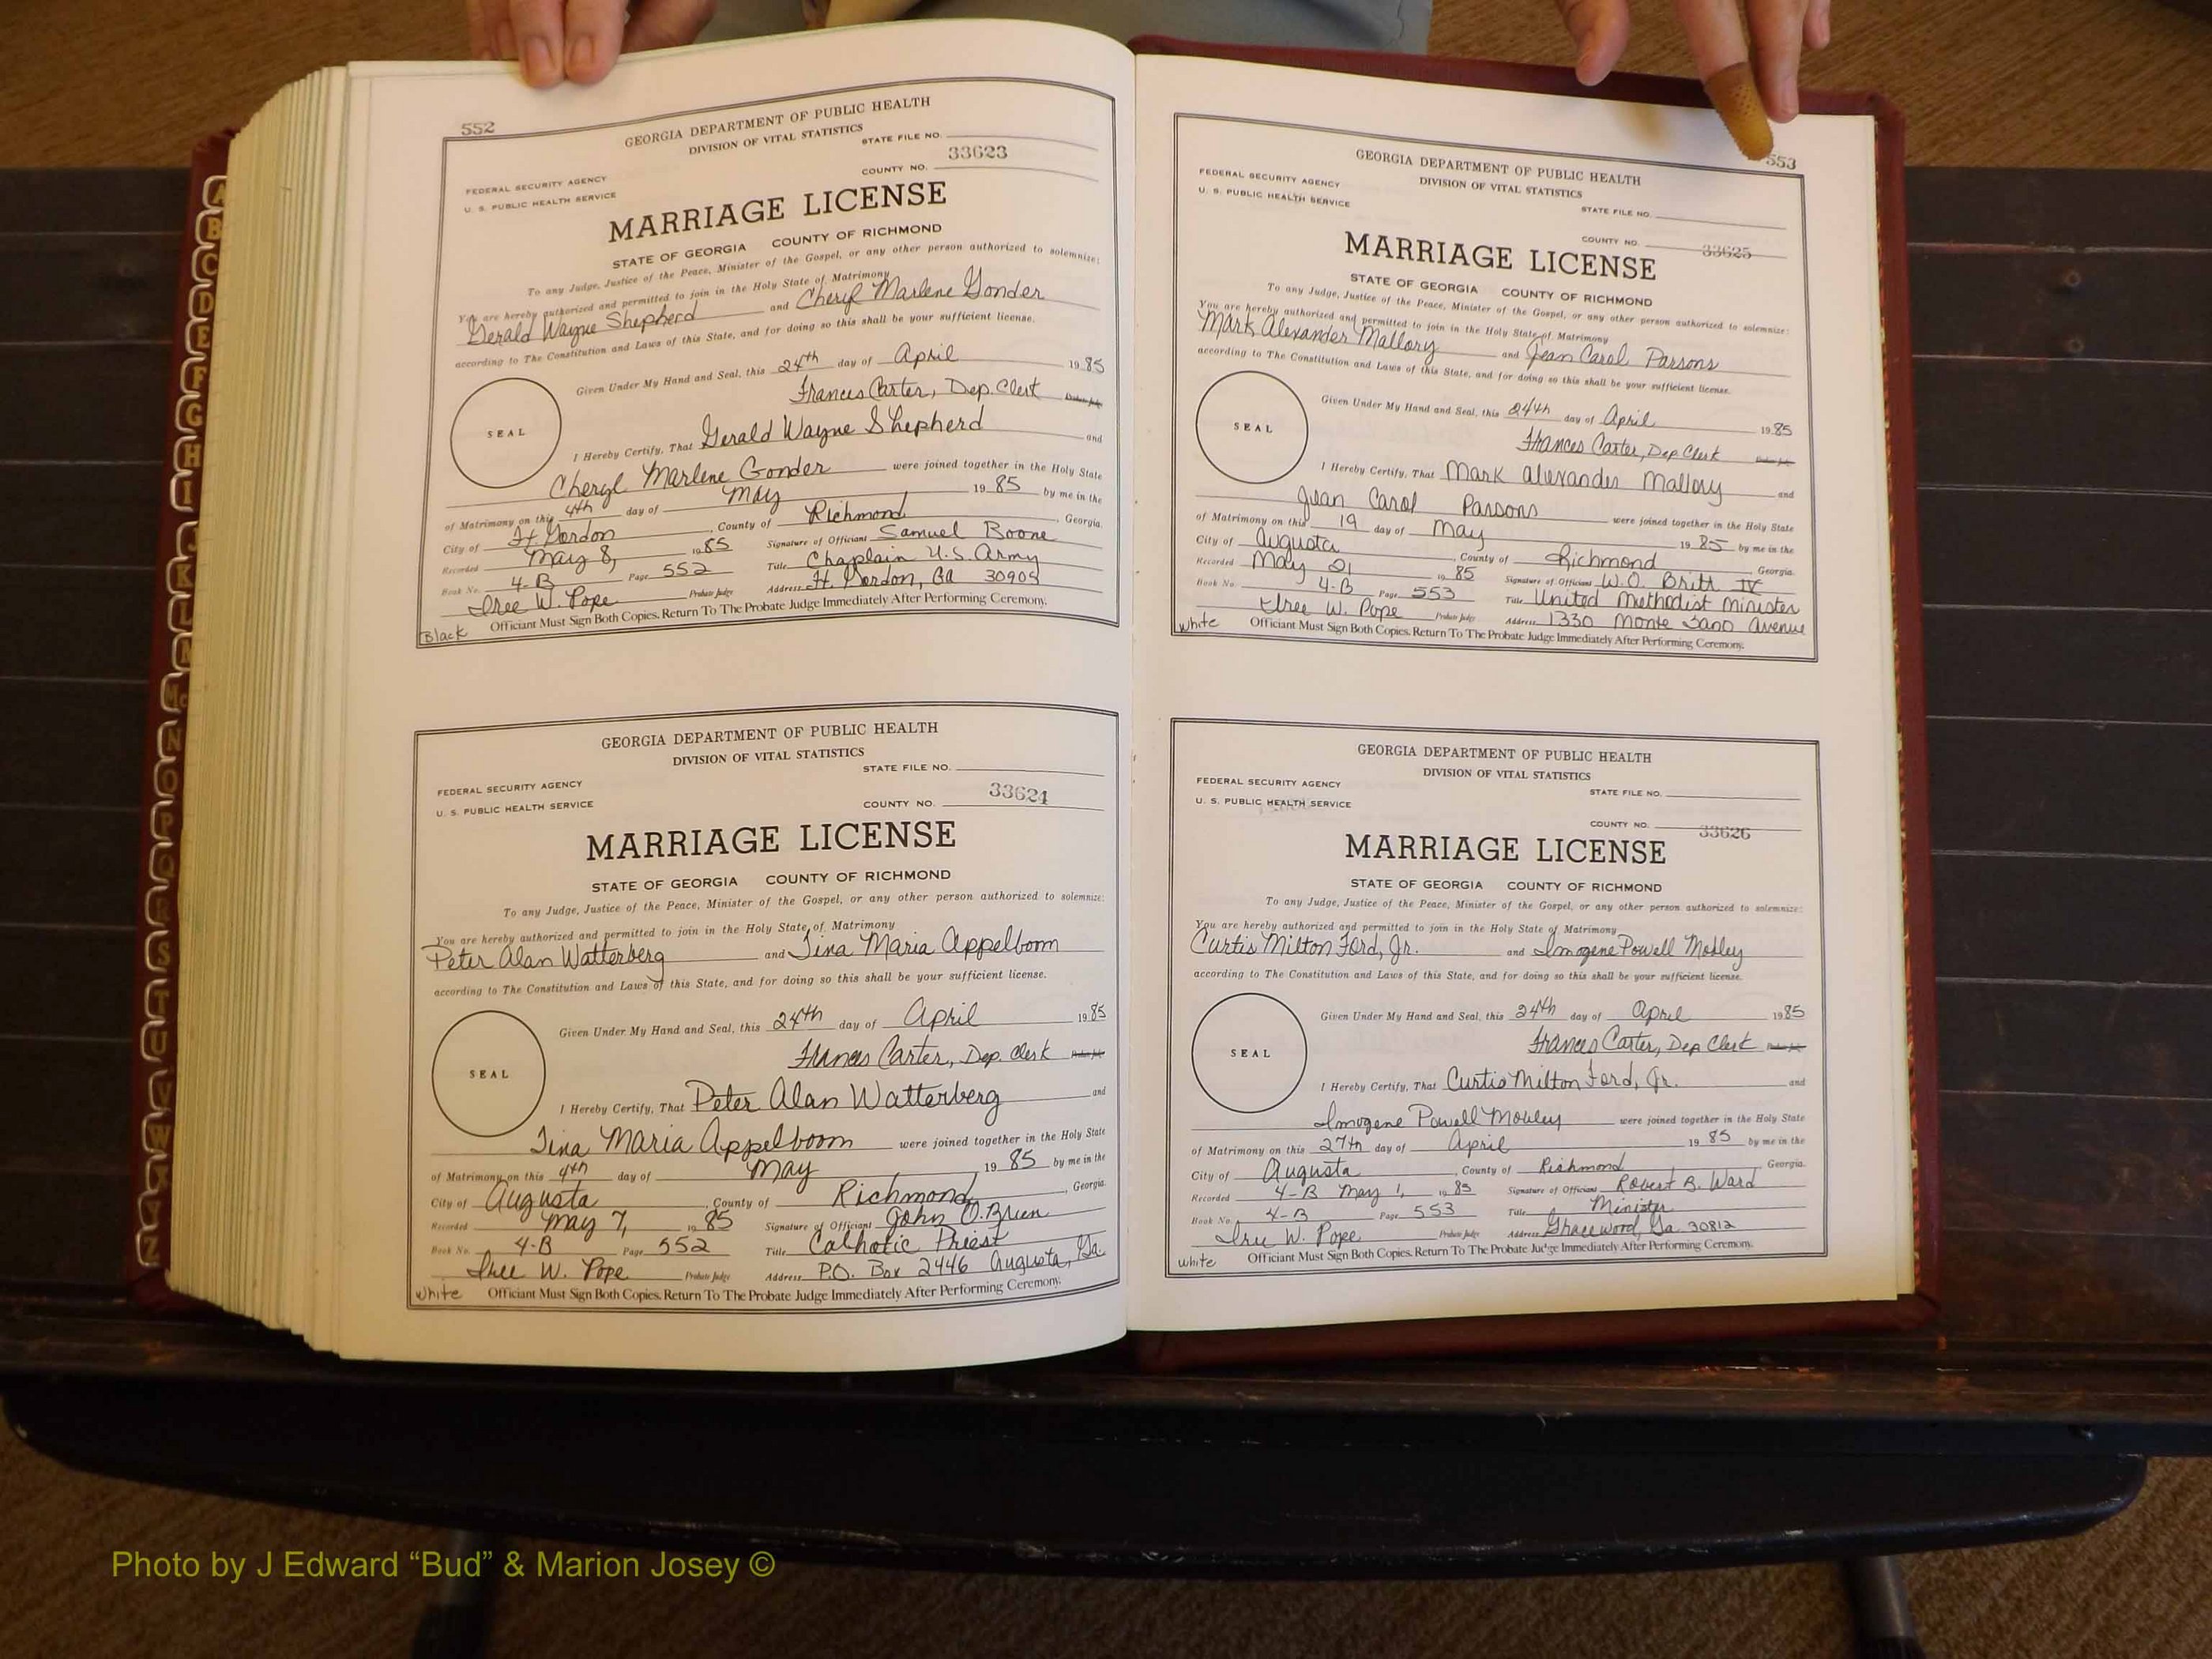 552
GEORGIA DEPARTMENT OF PUBLIC HEALTH
DIVISION OF VITAL STATISTICS
STATE FILE NO.
FEDERAL SECURITY AGENCY
U. S. PUBLIC HEALTH SERVICE
COUNTY NO. 33623
MARRIAGE LICENSE
STATE OF GEORGIA COUNTY OF RICHMOND
To any Judge, Justice of the Peace, Minister of the Gospel, or any other person authorized to solemnize:
You are hereby authorized and permitted to join in the Holy State of Matrimony
Gerald Wayne Shepherd and Cheryl Marlene Gonder
according to The Constitution and Laws of this State, and for doing so this shall be your sufficient license.
Given Under My Hand and Seal, this 24th day of April 1985
Frances Carter, Dep. Clerk Probate Judge
SEAL
I Hereby Certify, That Gerald Wayne Shepherd and
Cheryl Marlene Gonder were joined together in the Holy State
of Matrimony on this 4th day of May 1985 by me in the
City of Ft. Gordon, County of Richmond, Georgia.
Recorded May 8, 1985 Signature of Officiant Samuel Boone
Book No. 4-B Page 552 Title Chaplain U.S. Army
Iree W. Pope Probate Judge Address Ft. Gordon, Ga 30905
Black Officiant Must Sign Both Copies. Return To The Probate Judge Immediately After Performing Ceremony.
GEORGIA DEPARTMENT OF PUBLIC HEALTH
DIVISION OF VITAL STATISTICS
STATE FILE NO.
FEDERAL SECURITY AGENCY
U. S. PUBLIC HEALTH SERVICE
COUNTY NO. 33624
MARRIAGE LICENSE
STATE OF GEORGIA COUNTY OF RICHMOND
To any Judge, Justice of the Peace, Minister of the Gospel, or any other person authorized to solemnize:
You are hereby authorized and permitted to join in the Holy State of Matrimony
Peter Alan Watterberg and Tina Maria Appelboom
according to The Constitution and Laws of this State, and for doing so this shall be your sufficient license.
Given Under My Hand and Seal, this 24th day of April 1985
Frances Carter, Dep. Clerk Probate Judge
SEAL
I Hereby Certify, That Peter Alan Watterberg and
Tina Maria Appelboom were joined together in the Holy State
of Matrimony on this 4th day of May, 1985 by me in the
City of Augusta, County of Richmond, Georgia.
Recorded May 7, 1985 Signature of Officiant John O.Brien
Book No. 4-B Page 552 Title Catholic Priest
Iree W. Pope Probate Judge Address P.O. Box 2446 Augusta, Ga.
White Officiant Must Sign Both Copies. Return To The Probate Judge Immediately After Performing Ceremony.
553
GEORGIA DEPARTMENT OF PUBLIC HEALTH
DIVISION OF VITAL STATISTICS
FEDERAL SECURITY AGENCY
U. S. PUBLIC HEALTH SERVICE
STATE FILE NO.
COUNTY NO. 33625
MARRIAGE LICENSE
STATE OF GEORGIA COUNTY OF RICHMOND
To any Judge, Justice of the Peace, Minister of the Gospel, or any other person authorized to solemnize:
You are hereby authorized and permitted to join in the Holy State of Matrimony
Mark Alexander Mallory and Jean Carol Parsons
according to The Constitution and Laws of this State, and for doing so this shall be your sufficient license.
Given Under My Hand and Seal, this 24th day of April 1985
Frances Carter, Dep Clerk Probate Judge
SEAL
I Hereby Certify, That Mark Alexander Mallory and
Jean Carol Parsons were joined together in the Holy State
of Matrimony on this 19 day of May 1985 by me in the
City of Augusta, County of Richmond Georgia.
Recorded May 21 1985 Signature of Officiant W.O. Britt IV
Book No. 4-B Page 553 Title United Methodist Minister
Iree W. Pope Probate Judge Address 1330 Monte Sano Avenue
White Officiant Must Sign Both Copies. Return To The Probate Judge Immediately After Performing Ceremony.
GEORGIA DEPARTMENT OF PUBLIC HEALTH
DIVISION OF VITAL STATISTICS
FEDERAL SECURITY AGENCY
STATE FILE NO.
U. S. PUBLIC HEALTH SERVICE
COUNTY NO. 33626
MARRIAGE LICENSE
STATE OF GEORGIA COUNTY OF RICHMOND
To any Judge, Justice of the Peace, Minister of the Gospel, or any other person authorized to solemnize:
You are hereby authorized and permitted to join in the Holy State of Matrimony
Curtis Milton Ford, Jr. and Imogene Powell Mobley
according to The Constitution and Laws of this State, and for doing so this shall be your sufficient license.
Given Under My Hand and Seal, this 24th day of April 1985
Frances Carter, Dep Clerk Probate Judge
SEAL
I Hereby Certify, That Curtis Milton Ford, Jr. and
Imogene Powell Mobley were joined together in the Holy State
of Matrimony on this 27th day of April 1985 by me in the
City of Augusta, County of Richmond, Georgia.
Recorded 4-B May 1, 1985 Signature of Officiant Robert B. Ward
Book No. 4-B Page 553 Title Minister
Iree W. Pope Probate Judge Address Gracewood, Ga. 30812
White Officiant Must Sign Both Copies. Return To The Probate Judge Immediately After Performing Ceremony.
Photo by J Edward “Bud” & Marion Josey ©